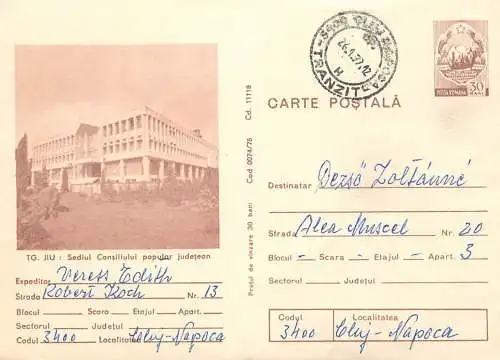 TG. JIU : Sediul Consiliului popular județean
Expeditor Veress Edith
Strada Robert Koch Nr. 13
Blocul Scara Etajul Apart.
Sectorul Județul
Codul 3400 Localitatea Cluj-Napoca
Prețul de vînzare 30 bani Cod 0074/76 Cd. 11118
TRANZIT
POSTA ROMANA 30 BANI
CARTE POȘTALĂ
Destinatar Dezső Zoltánné
Strada Alea Muscel Nr. 20
Blocul - Scara - Etajul - Apart. 3
Sectorul Județul
Codul Localitatea
3400 Cluj-Napoca